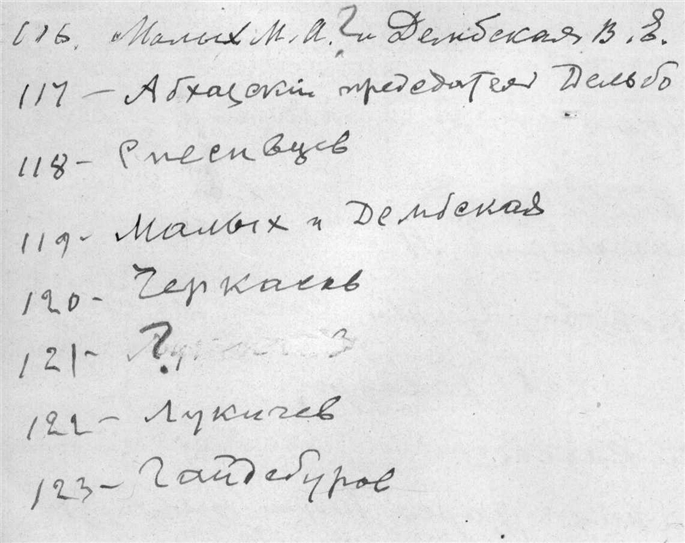 116. Малых М.А.? и Дембская В.Е.
117 – Абхазский председатель Дельбо
118 – Спесивцев
119 – Малых и Дембская
120 – Черкасов
121 – ?
122 – Лукичев
123 – Гайдебуров